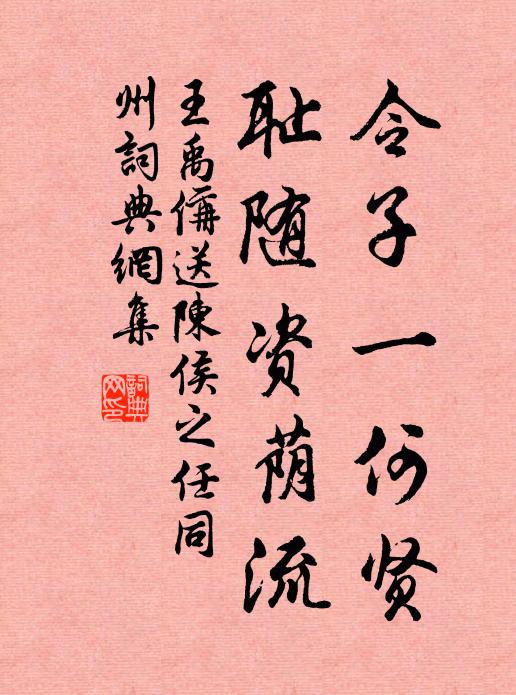 令子一何贤
耻随资荫流
王禹偁送陳侯之任同
州詞典網集
詞典网印